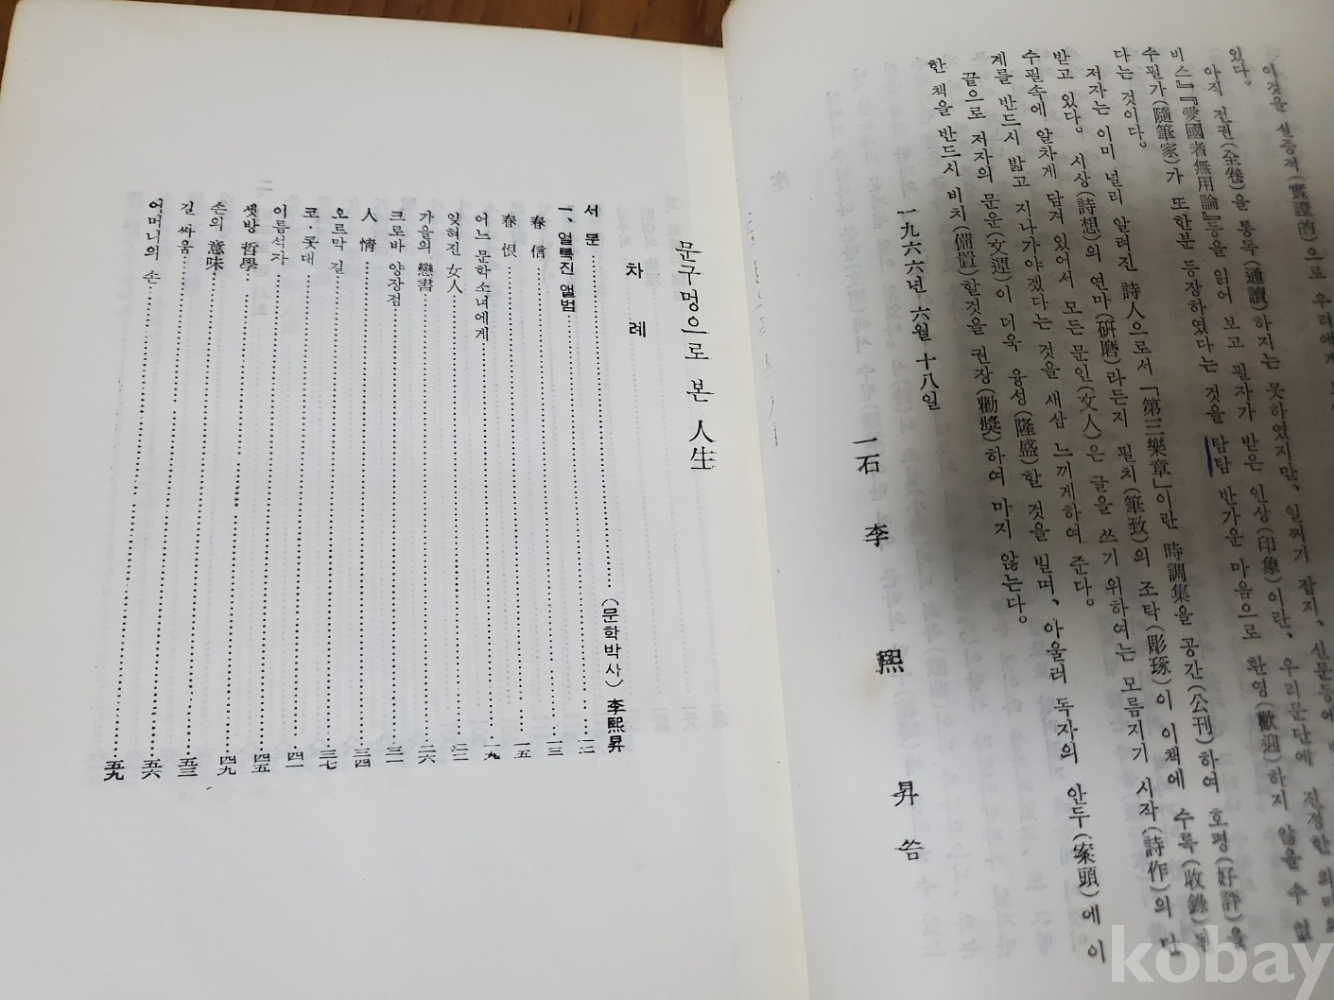 이것을 실증적(實證的)으로 우리에게
있다。
아직 전권(全卷)을 통독(通讀)하지는 못하였지만、일찌기 잡지、신문등에
비스』『愛國者無用論』등을 읽어 보고 필자가 받은 인상(印象)이란、우리문단에 진정한 의미
수필가(隨筆家)가 또한분 등장하였다는 것을 탐탐 반가운 마음으로 환영(歡迎)하지 않을 수 없
다는 것이다。
저자는 이미 널리 알려진 詩人으로서 「第三樂章」이란 時調集을 공간(公刊)하여 호평(好評)을
받고 있다。시상(詩想)의 연마(硏磨)라든지 필치(筆致)의 조탁(彫琢)이 이책에 수록(收錄)된
수필속에 알차게 담겨 있어서 모든 문인(文人)은 글을 쓰기 위하여는 모름지기 시작(詩作)의 단
계를 반드시 밟고 지나가야겠다는 것을 새삼 느끼게하여 준다。
끝으로 저자의 문운(文運)이 더욱 융성(隆盛)할 것을 빌며、아울러 독자의 안두(案頭)에 이
한 책을 반드시 비치(備置)할것을 권장(勸獎)하여 마지 않는다。
一九六六년 六월 十八일
一石 李熙昇 씀
문구멍으로 본 人生
차 례
서 문 (문학박사) 李熙昇 一二
一、얼룩진 앨범 一三
春 信 一五
春 恨 一九
어느 문학소녀에게 二二
잊혀진 女人 二六
가을의 戀書 三一
크로바 양장점 三四
人 情 三七
오르막 길 四一
코・콧대 四五
이름석자 四九
셋방 哲學 五三
손의 意味 五六
길 싸움 五九
어머니의 손
二
kobay